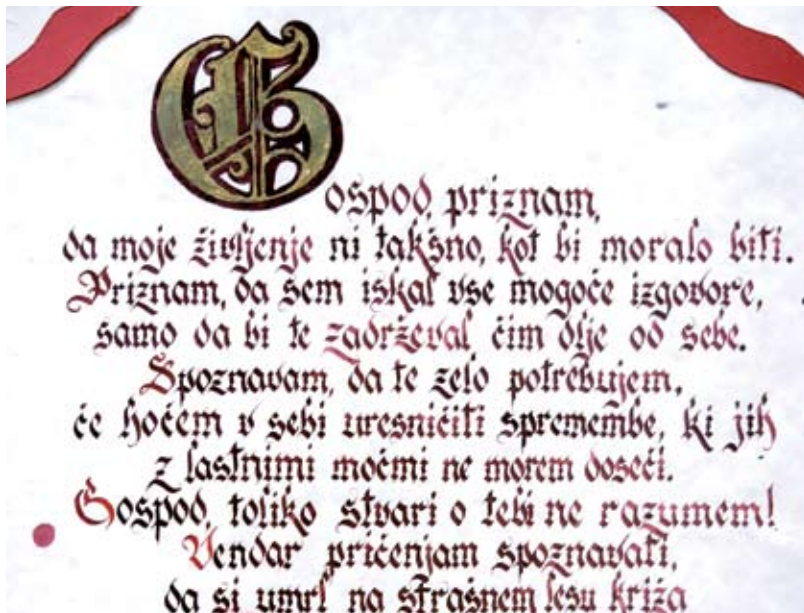 Gospod, priznam,
da moje življenje ni takšno, kot bi moralo biti.
Priznam, da sem iskal vse mogoče izgovore,
samo da bi te zadrževal čim dlje od sebe.
Spoznavam, da te zelo potrebujem,
če hočem v sebi uresničiti spremembe, ki jih
z lastnimi močmi ne morem doseči.
Gospod, toliko stvari o tebi ne razumem!
Vendar pričenjam spoznavati,
da si umrl na strašnem lesu križa